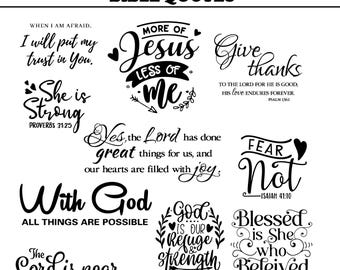 BIBLE QUOTES
WHEN I AM AFRAID,
I will put my
trust in You.
MORE OF
Jesus
LESS OF
me
Give
thanks
TO THE LORD FOR HE IS GOOD,
HIS love ENDURES FOREVER.
PSALM 136:1
She is
Strong
PROVERBS 31:25
Yes, the Lord has done
great things for us, and
our hearts are filled with joy.
FEAR
Not
ISAIAH 41:10
With God
ALL THINGS ARE POSSIBLE
God
IS OUR
Refuge
&
Strength
Blessed
is She
who
Believed
The
Lord is near